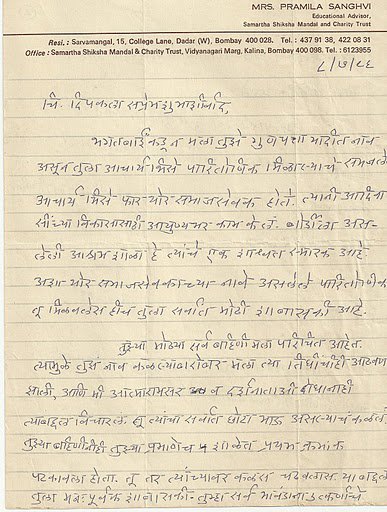 MRS. PRAMILA SANGHVI
Educational Advisor,
Samartha Shiksha Mandal and Charity Trust
Resi.: Sarvamangal, 15, College Lane, Dadar (W), Bombay 400 028. Tel.: 437 91 38, 422 08 31
Office: Samartha Shiksha Mandal & Charity Trust, Vidyanagari Marg, Kalina, Bombay 400 098. Tel.: 6123955
८/७/८६
चि. दिपकला सप्रेम शुभाशीर्वाद,
भगतबाईंकडून मला तुझे गुणपत्रा मधील नांव
असून तुला आचार्य भिसे पारितोषिक मिळाल्याचे समजले
आचार्य भिसे फार थोर समाजसेवक होते. त्यांनी आदिवा
सींच्या विकासासाठी आयुष्यभर काम केलं. बोर्डीला अस-
लेली आश्रम शाळा हे त्यांचे एक शाश्वत स्मारक आहे
अशा थोर समाजसेवकाच्या नावे असलेले पारितोषिक
तू मिळवलेस हीच तुला सर्वात मोठी शाबासकी आहे.
तुझ्या मोठ्या सर्व बहिणी मला परिचित आहेत.
त्यामुळे तुझं नाव कळल्याबरोबर मला त्या तिघींचीही आठवण
झाली, आणि मी आत्मारामसर व दर्शनाताई दोघांनाही
त्याबद्दल विचारलं. तू त्यांचा सर्वात छोटा भाऊ असल्याचं कळलं
तुझ्या बहिणींनीही तुझ्या प्रमाणेच शाळेत प्रथम क्रमांक
पटकावला होता. तू तर त्यांच्यावर कळस चढवलास या बद्दल
तुला मनःपूर्वक शाबासकी. तुम्हा सर्व भावंडांना उत्कर्षाचे